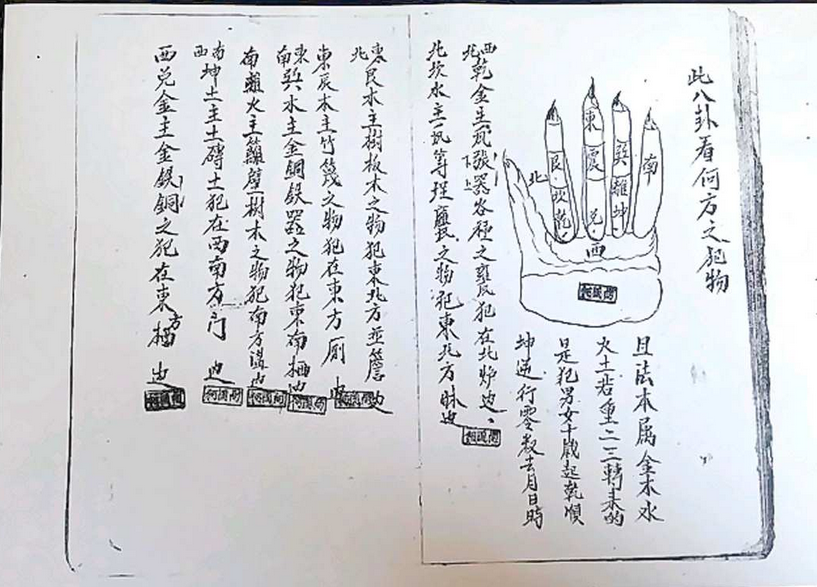 此八卦看何方之犯物
南
巽離坤
東震兌
艮坎乾
北
西
且法本属金木水
火土若重二三轉来的
是犯男女十歲起乾順
坤逆行零数去月日時
西北乾金主瓦張器各種之甕瓦犯在北炉边
下上
北坎水主瓦等埕甕之物犯東北方
東北艮木主樹板木之物犯東北方並簷边
東辰木主竹篾之物犯在東方厠边
東南巽水主金銅鉄器之物犯東南栖边
南離火主籬壁樹木之物犯南方溝边
西南坤土主土磚土犯在西南方门边
西兌金主金鉄銅之犯在東方栖边